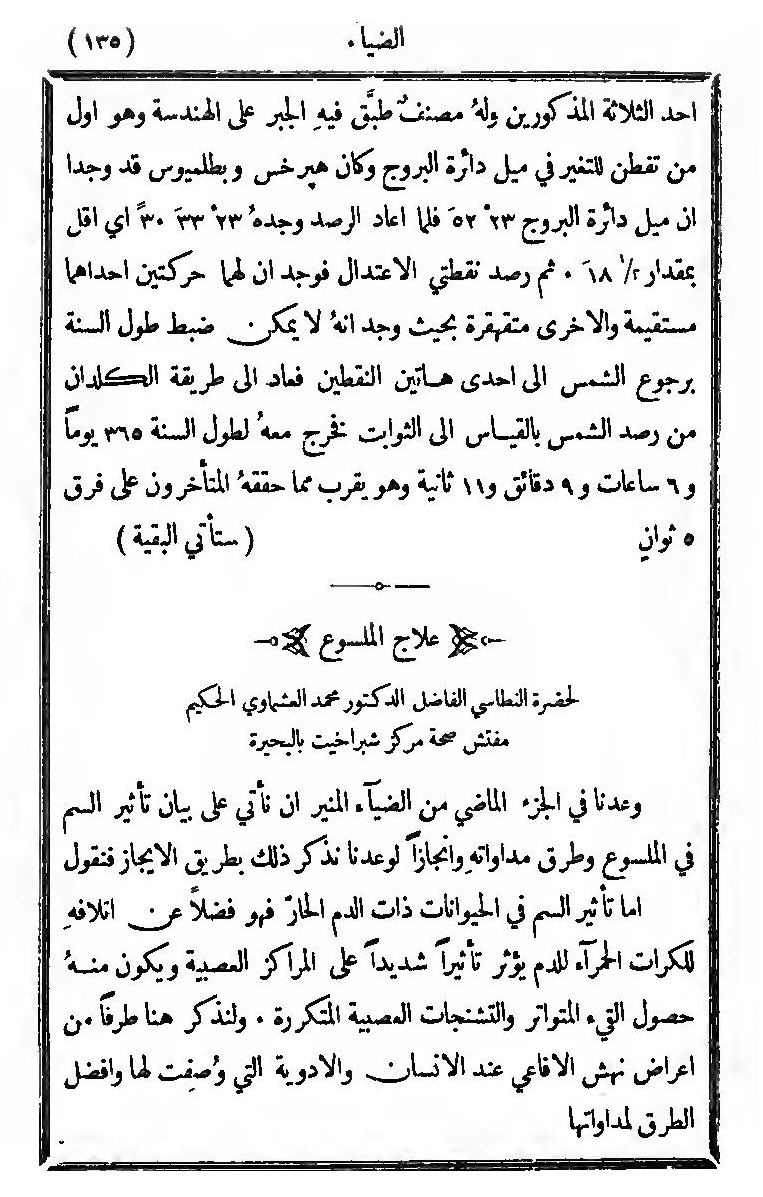 الضياء (١٣٥)
احد الثلاثة المذكورين ولهُ مصنفٌ طبَّق فيهِ الجبر على الهندسة وهو اول
من تفطن للتغير في ميل دائرة البروج وكان هپرخس وبطلميوس قد وجدا
ان ميل دائرة البروج ٢٣ْ ٥٢َ فلما اعاد الرصد وجدهُ ٢٣ْ ٣٣َ ٣٠ً اي اقل
بمقدار ١/٢ ١٨َ . ثم رصد نقطتي الاعتدال فوجد ان لهما حركتين احداهما
مستقيمة والاخرى متقهقرة بحيث وجد انهُ لا يمكن ضبط طول السنة
برجوع الشمس الى احدى هاتين النقطين فعاد الى طريقة الكلدان
من رصد الشمس بالقياس الى الثوابت فخرج معهُ لطول السنة ٣٦٥ يوماً
و٦ ساعات و٩ دقائق و١١ ثانية وهو يقرب مما حققهُ المتأخرون على فرق
٥ ثوانٍ (ستأتي البقية)
علاج الملسوع
لحضرة النطاسي الفاضل الدكتور محمد العشماوي الحكيم
مفتش صحة مركز شبراخيت بالبحيرة
وعدنا في الجزء الماضي من الضيآء المنير ان نأتي على بيان تأثير السم
في الملسوع وطرق مداواتهِ وانجازاً لوعدنا نذكر ذلك بطريق الايجاز فنقول
اما تأثير السم في الحيوانات ذات الدم الحارّ فهو فضلاً عن اتلافهِ
للكرات الحمرآء للدم يؤثر تأثيراً شديداً على المراكز العصبية ويكون منهُ
حصول القيء المتواتر والتشنجات العصبية المتكررة . ولنذكر هنا طرفاً من
اعراض نهش الافاعي عند الانسان والادوية التي وُصفت لها وافضل
الطرق لمداواتها